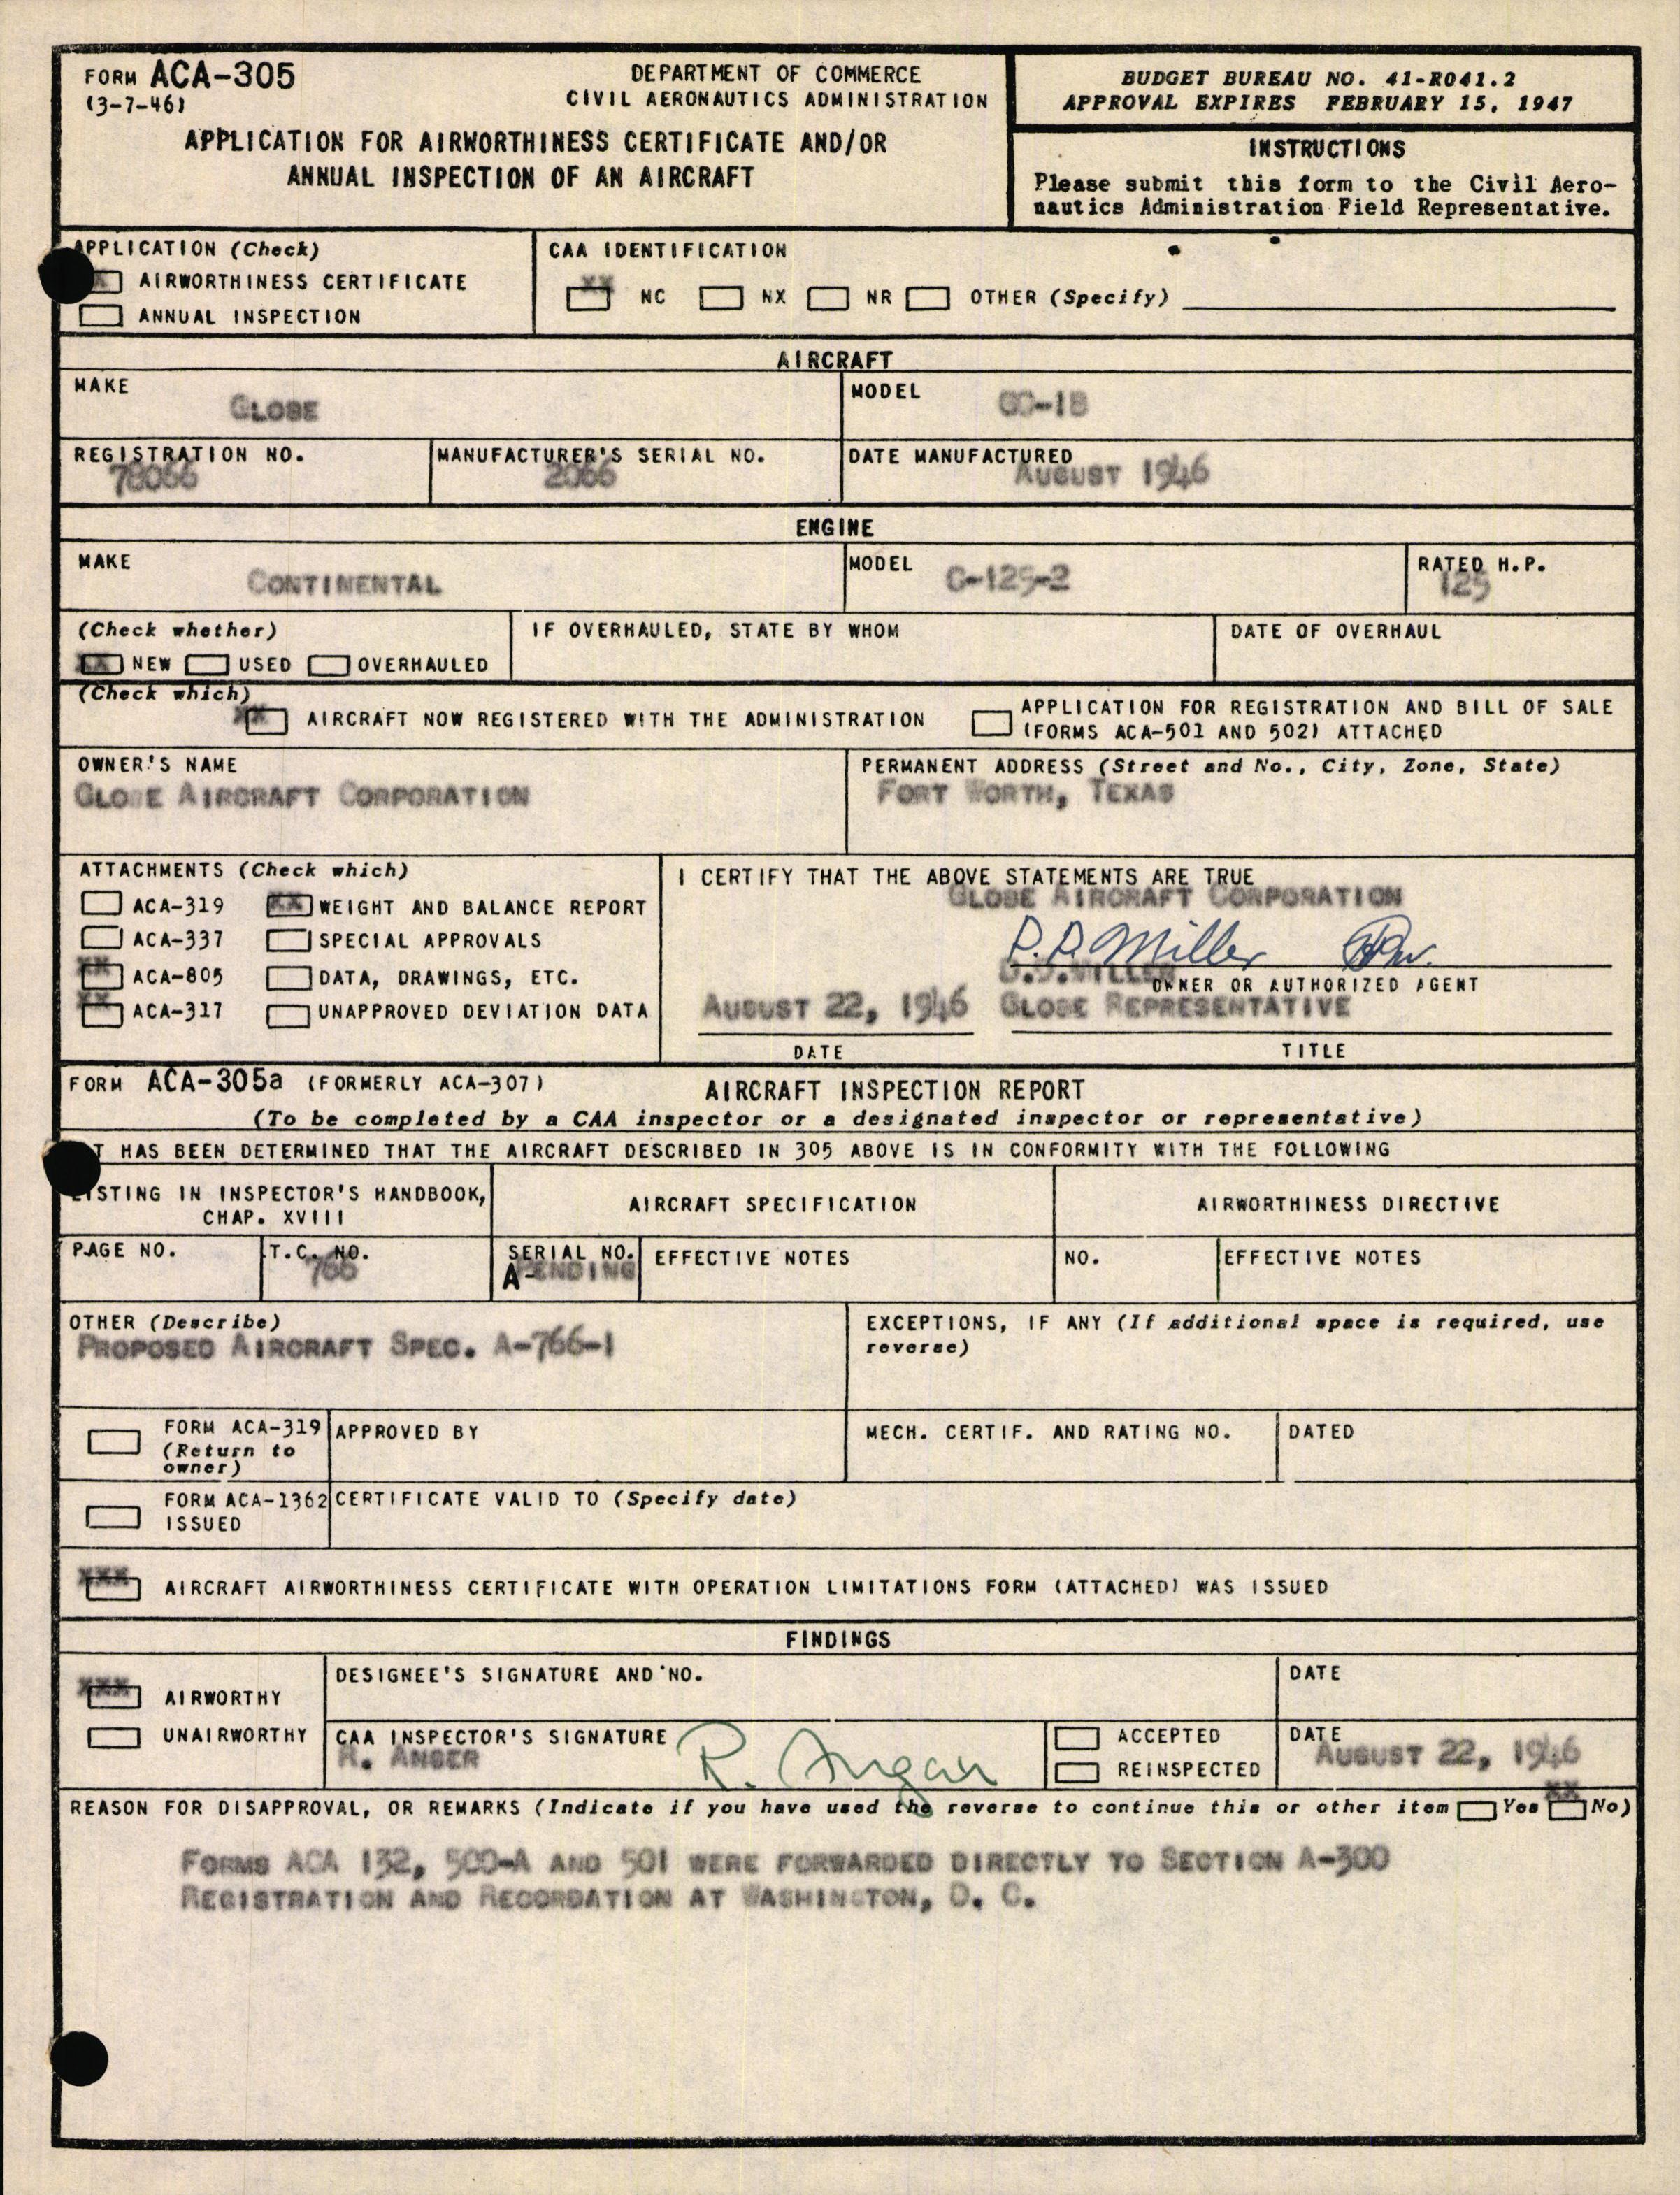 FORM ACA-305
(3-7-46)
DEPARTMENT OF COMMERCE
CIVIL AERONAUTICS ADMINISTRATION
APPLICATION FOR AIRWORTHINESS CERTIFICATE AND/OR
ANNUAL INSPECTION OF AN AIRCRAFT
BUDGET BUREAU NO. 41-R041.2
APPROVAL EXPIRES FEBRUARY 15, 1947
INSTRUCTIONS
Please submit this form to the Civil Aero-
nautics Administration Field Representative.
APPLICATION (Check)
X AIRWORTHINESS CERTIFICATE
ANNUAL INSPECTION
CAA IDENTIFICATION
XX NC NX NR OTHER (Specify)
AIRCRAFT
MAKE
GLOBE
MODEL
GC-1B
REGISTRATION NO.
78066
MANUFACTURER'S SERIAL NO.
2066
DATE MANUFACTURED
AUGUST 1946
ENGINE
MAKE
CONTINENTAL
MODEL
C-125-2
RATED H.P.
125
(Check whether)
XX NEW USED OVERHAULED
IF OVERHAULED, STATE BY WHOM
DATE OF OVERHAUL
(Check which)
XX AIRCRAFT NOW REGISTERED WITH THE ADMINISTRATION
APPLICATION FOR REGISTRATION AND BILL OF SALE
(FORMS ACA-501 AND 502) ATTACHED
OWNER'S NAME
GLOBE AIRCRAFT CORPORATION
PERMANENT ADDRESS (Street and No., City, Zone, State)
FORT WORTH, TEXAS
ATTACHMENTS (Check which)
ACA-319 XX WEIGHT AND BALANCE REPORT
ACA-337 SPECIAL APPROVALS
XX ACA-805 DATA, DRAWINGS, ETC.
XX ACA-317 UNAPPROVED DEVIATION DATA
I CERTIFY THAT THE ABOVE STATEMENTS ARE TRUE
GLOBE AIRCRAFT CORPORATION
Miller
MILLER
OWNER OR AUTHORIZED AGENT
AUGUST 22, 1946 GLOBE REPRESENTATIVE
DATE TITLE
FORM ACA-305a (FORMERLY ACA-307)
AIRCRAFT INSPECTION REPORT
(To be completed by a CAA inspector or a designated inspector or representative)
IT HAS BEEN DETERMINED THAT THE AIRCRAFT DESCRIBED IN 305 ABOVE IS IN CONFORMITY WITH THE FOLLOWING
LISTING IN INSPECTOR'S HANDBOOK,
CHAP. XVIII
AIRCRAFT SPECIFICATION
AIRWORTHINESS DIRECTIVE
PAGE NO.
T.C. NO.
766
SERIAL NO.
A-PENDING
EFFECTIVE NOTES
NO.
EFFECTIVE NOTES
OTHER (Describe)
PROPOSED AIRCRAFT SPEC. A-766-1
EXCEPTIONS, IF ANY (If additional space is required, use
reverse)
FORM ACA-319
(Return to
owner)
APPROVED BY
MECH. CERTIF. AND RATING NO.
DATED
FORM ACA-1362
ISSUED
CERTIFICATE VALID TO (Specify date)
XXX AIRCRAFT AIRWORTHINESS CERTIFICATE WITH OPERATION LIMITATIONS FORM (ATTACHED) WAS ISSUED
FINDINGS
XXX AIRWORTHY
UNAIRWORTHY
DESIGNEE'S SIGNATURE AND NO.
DATE
CAA INSPECTOR'S SIGNATURE
R. ANGER
R. Anger
ACCEPTED
REINSPECTED
DATE
AUGUST 22, 1946
REASON FOR DISAPPROVAL, OR REMARKS (Indicate if you have used the reverse to continue this or other item Yes XX No)
FORMS ACA 132, 500-A AND 501 WERE FORWARDED DIRECTLY TO SECTION A-300
REGISTRATION AND RECORDATION AT WASHINGTON, D. C.